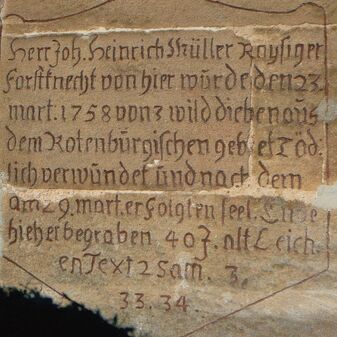 Herr Joh. Heinrich Müller Raysiger
Forstknecht von hier wurde den 23.
mart. 1758 von 3 wild dieben aus
dem Rotenburgischen gebiet Töd.
lich verwundet und nach dem
am 29. mart. erfolgten seel. Ende
hieher begraben 40 J. alt Leich.
en Text 2 Sam. 3.
33. 34.